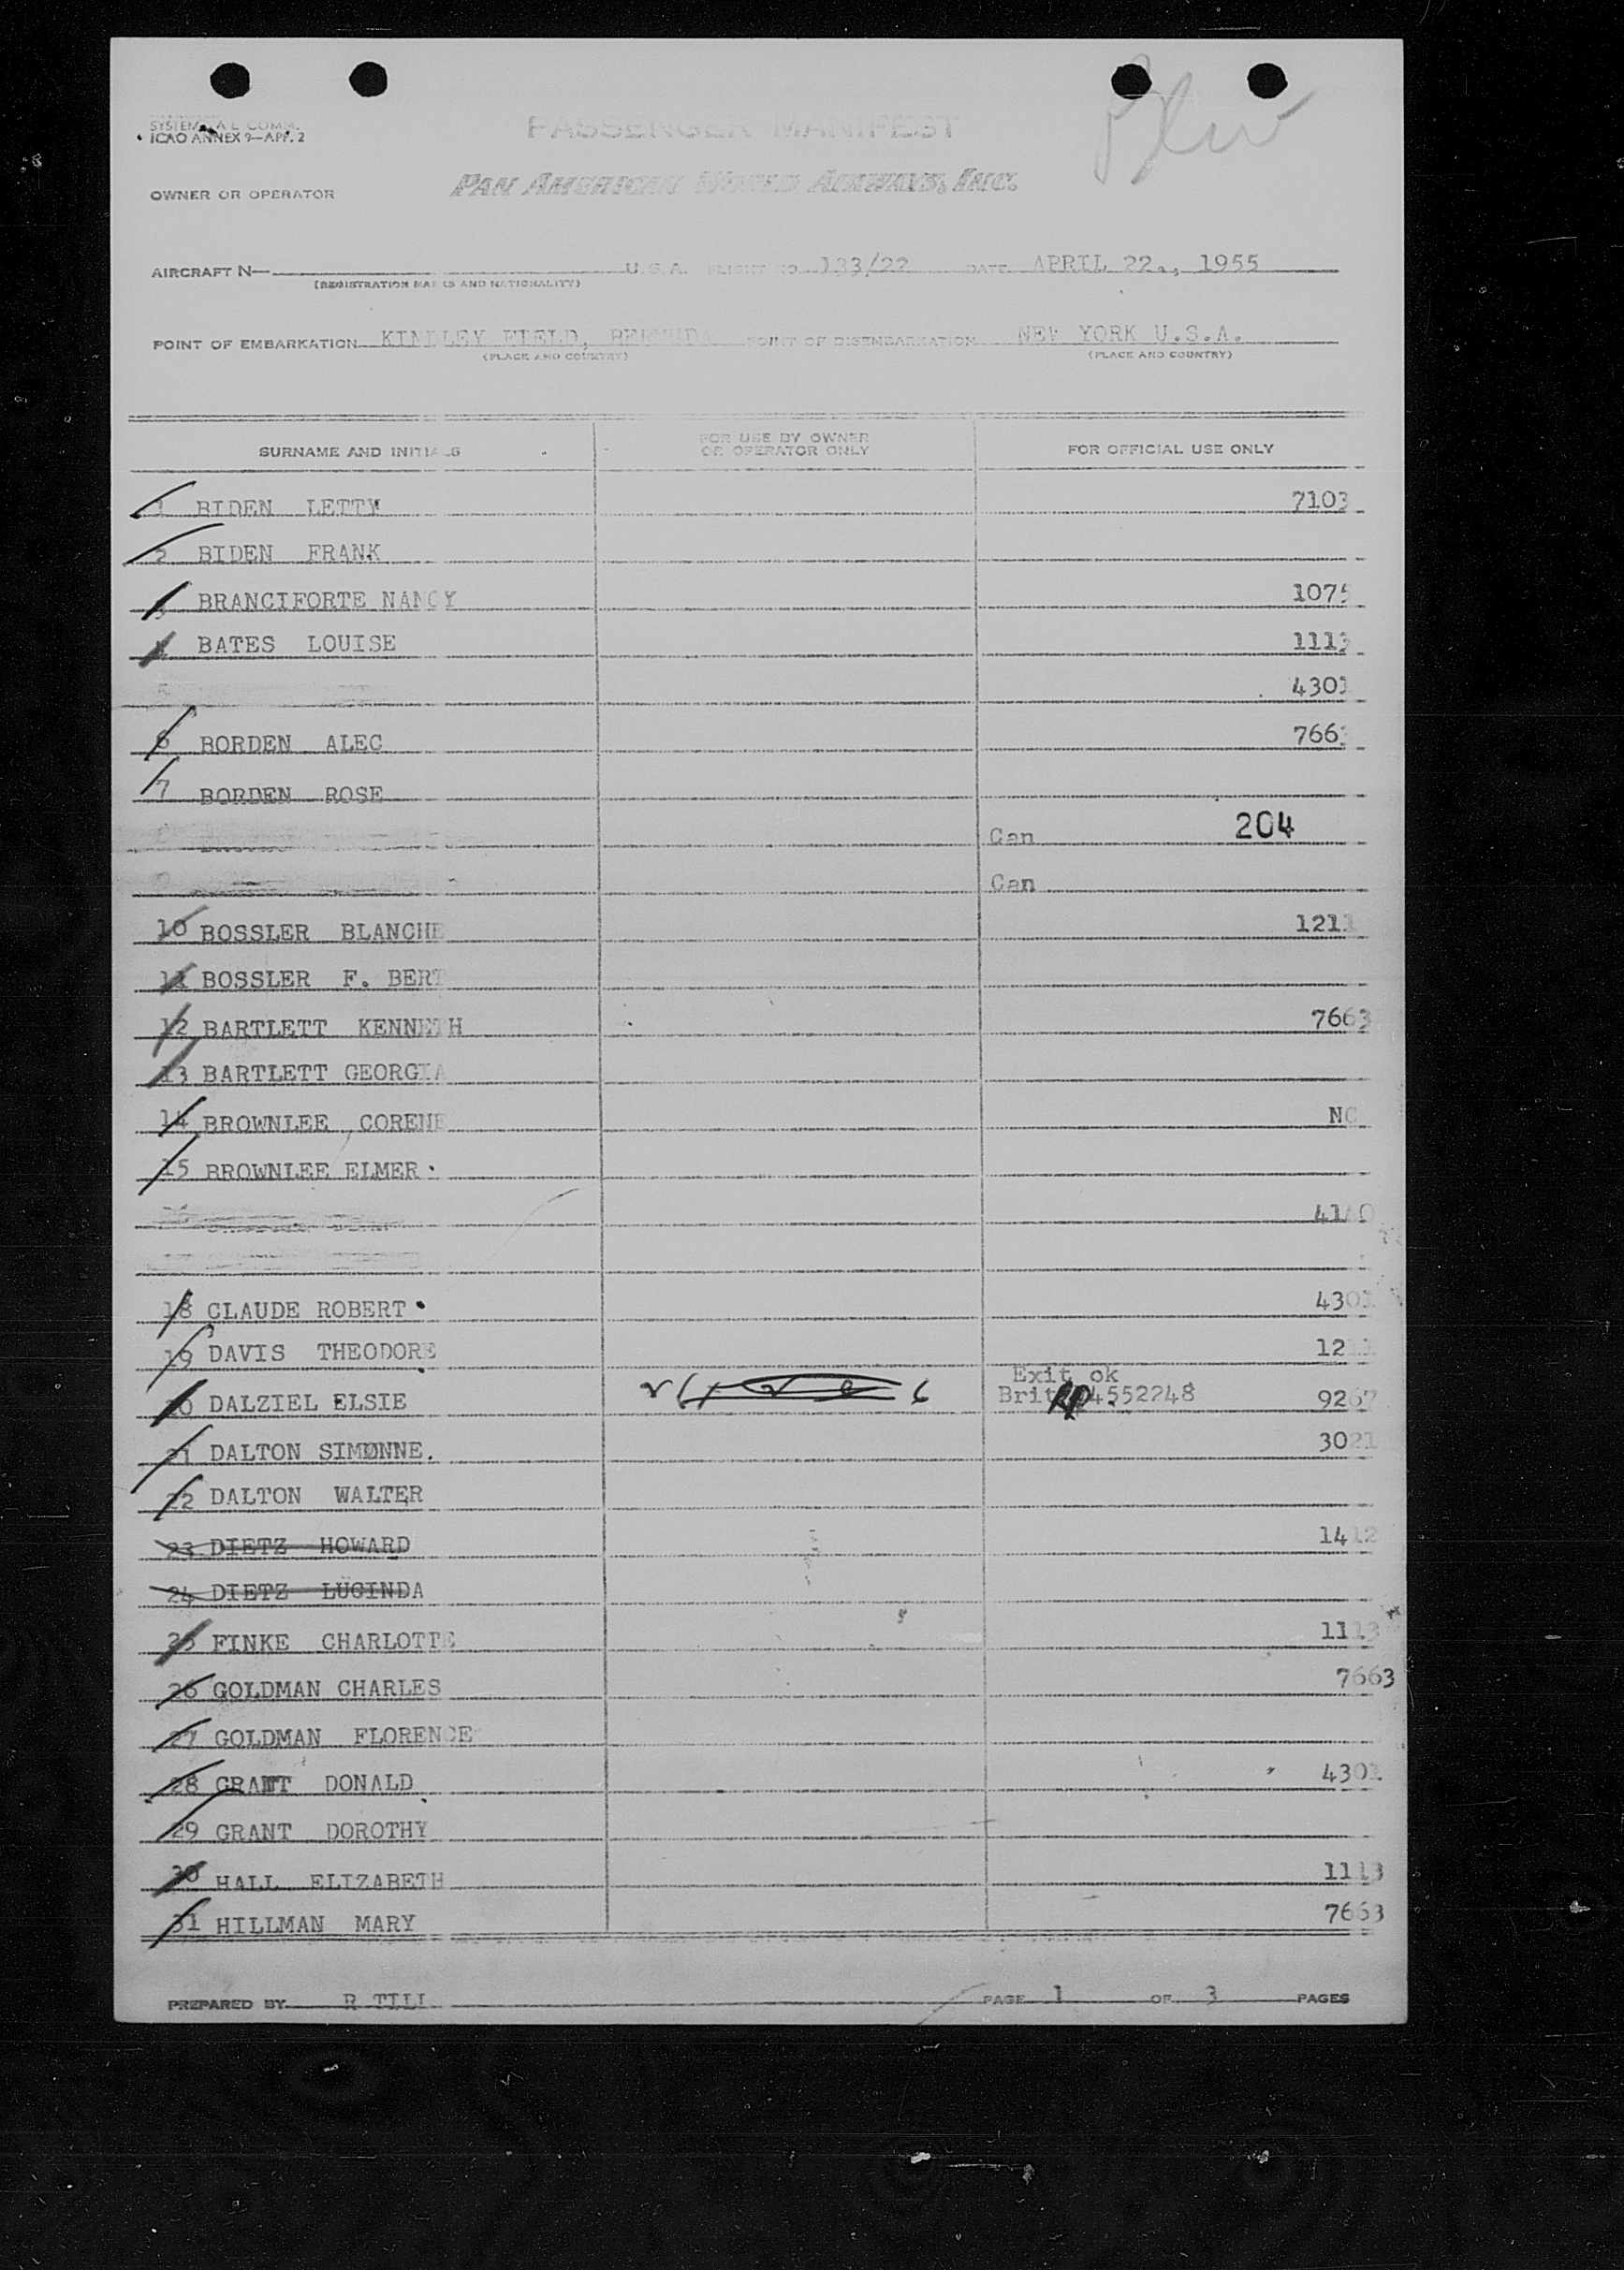 SYSTEM COMM.
ICAO ANNEX 9—APP. 2
PASSENGER MANIFEST
OWNER OR OPERATOR PAN AMERICAN WORLD AIRWAYS, INC.
AIRCRAFT N— U.S.A. FLIGHT NO. 133/22 DATE APRIL 22., 1955
(REGISTRATION MARKS AND NATIONALITY)
POINT OF EMBARKATION KINDLEY FIELD, BERMUDA POINT OF DISEMBARKATION NEW YORK U.S.A.
(PLACE AND COUNTRY) (PLACE AND COUNTRY)
SURNAME AND INITIALS FOR USE BY OWNER OR OPERATOR ONLY FOR OFFICIAL USE ONLY
1 BIDEN LETTY 7103
2 BIDEN FRANK
3 BRANCIFORTE NANCY 1075
4 BATES LOUISE 1113
5 4301
6 BORDEN ALEC 7663
7 BORDEN ROSE
8 Can 204
9 Can
10 BOSSLER BLANCHE 1211
11 BOSSLER F. BERT
12 BARTLETT KENNETH 7663
13 BARTLETT GEORGIA
14 BROWNLEE CORENE NC
15 BROWNLEE ELMER
18 CLAUDE ROBERT 4301
19 DAVIS THEODORE 1211
Exit ok
20 DALZIEL ELSIE Brit 4552248 9267
21 DALTON SIMONNE. 3021
22 DALTON WALTER
23 DIETZ HOWARD 1412
24 DIETZ LUCINDA
25 FINKE CHARLOTTE 1113
26 GOLDMAN CHARLES 7663
27 GOLDMAN FLORENCE
28 GRANT DONALD 4301
29 GRANT DOROTHY
30 HALL ELIZABETH 1113
31 HILLMAN MARY 7663
PREPARED BY R TILL PAGE 1 OF 3 PAGES